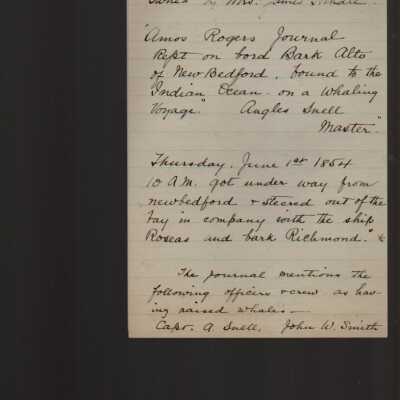 owned by Mrs. James
"Amos Rogers Journal
Kept on bord Bark Alto
of New Bedford, bound to the
Indian Ocean on a Whaling
Voyage". Angles Snell
Master".
Thursday, June 1st 1854
10 A.M. got under way from
newbedford & steered out of the
bay in company with the ship
Roseas and bark Richmond." &
The journal mentions the
following officers & crew as hav-
ing raised whales —
Capt. A. Snell, John W. Smith